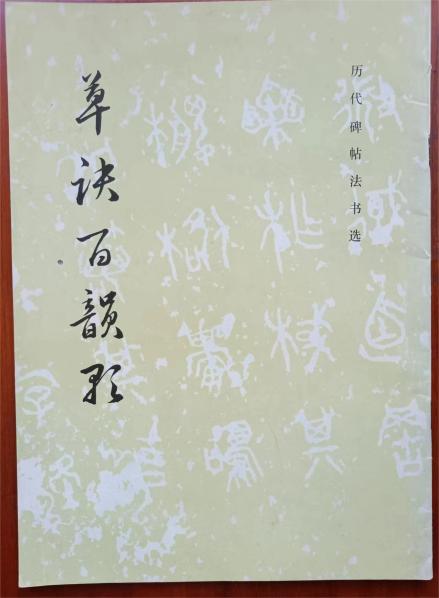 历代碑帖法书选
草诀百韵歌